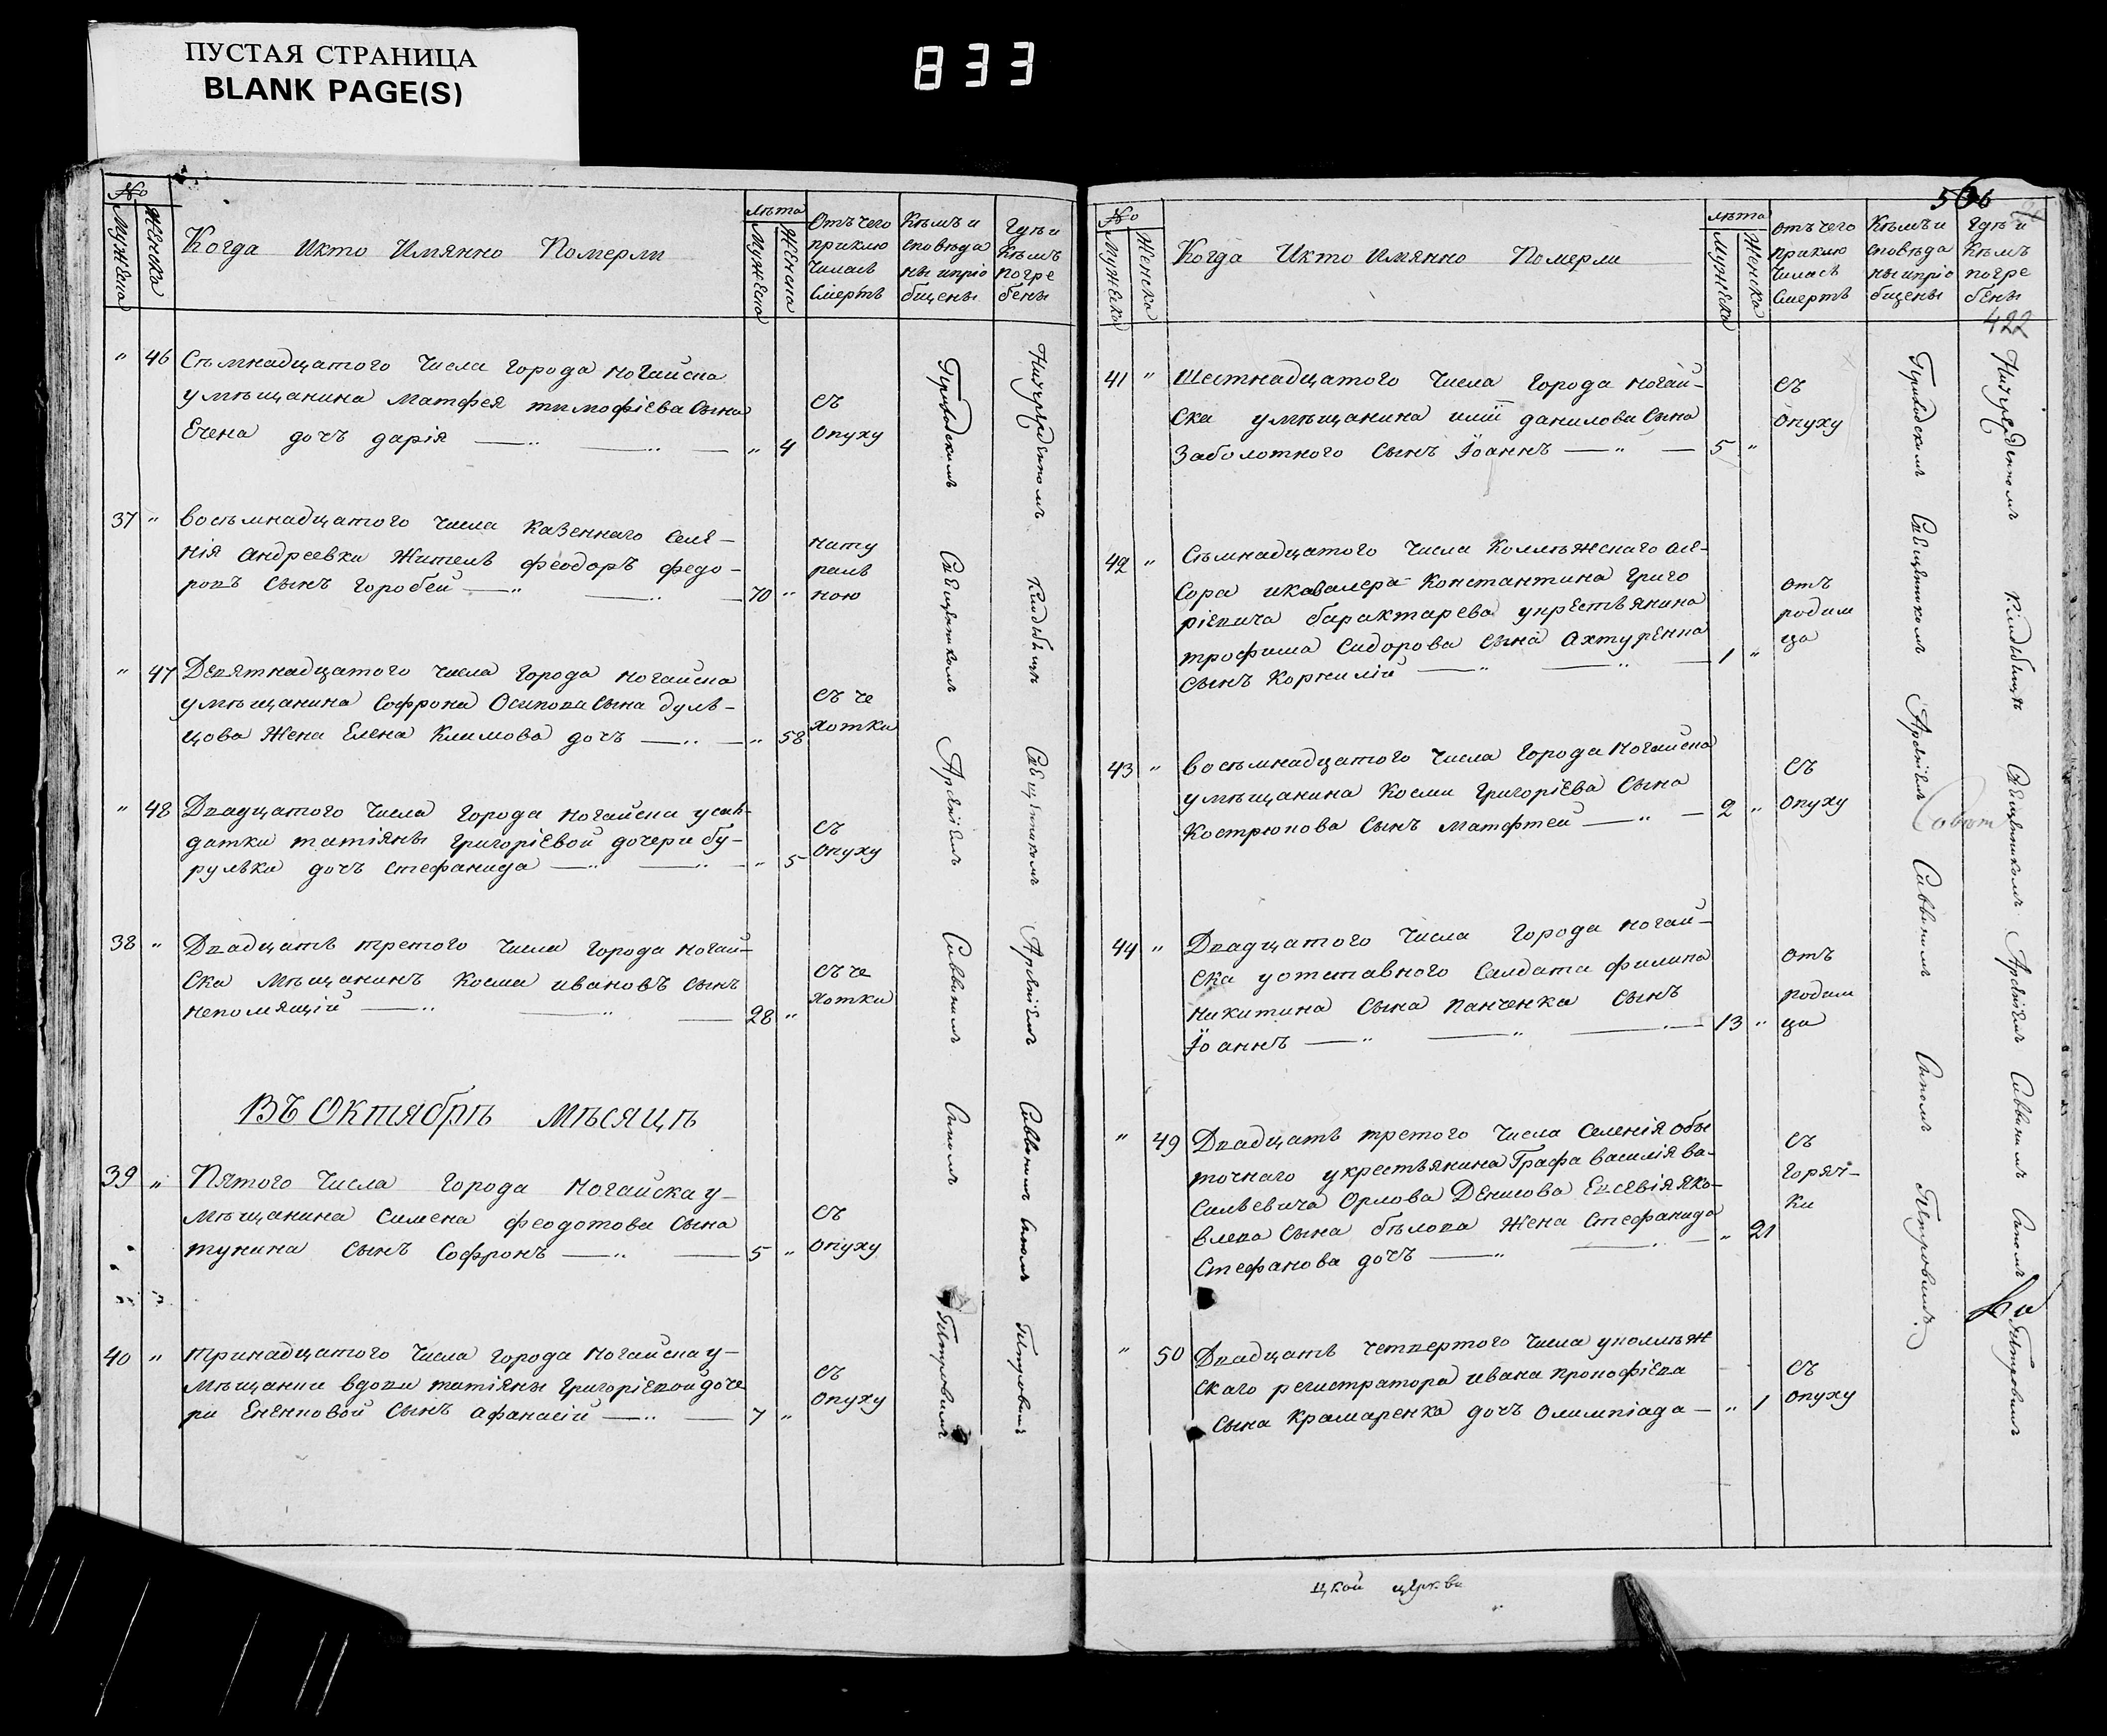 ПУСТАЯ СТРАНИЦА
BLANK PAGE(S)
833
№
Мужеска
Женска
Когда Икто Имянно Померли
лѣта
Мужеска
Женска
Отъ чего
приклю
чилась
Смерть
Кѣмъ и
сповѣда
ны и пріо
бщены
Гдѣ и
Кѣмъ
погре
бены
" 46 Сѣмнадцатого Числа города Ногайска
умѣщанина Матфея тимофіева Сына
дочь дарія " 4
съ
Опуху
37 " восѣмнадцатого числа Казеннаго Селе-
нія андреевки Житель феодоръ федо-
ровъ Сынъ Горобей 70 "
нату
раль
ною
" 47 Девятнадцатого числа города Ногайска
умѣщанина Софрона Осипова Сына дуль-
цова Жена Елена Климова дочь " 58
съ че
хотки
" 48 Двадцатого Числа города Ногайска усол-
датки татіяны григоріевой дочери бу-
рульки дочь стефанида " 5
съ
Опуху
38 " Двадцать третого числа города Ногай-
ска мѣщанинъ Косма ивановъ сынъ
непомящій 28 "
съ че
хотки
Въ Октябрѣ мѣсяцѣ
39 " Пятого Числа города Ногайска у-
мѣщанина Симена феодотова Сына
тунина Сынъ Софронъ 5 "
съ
Опуху
40 " тринадцатого Числа города Ногайска у-
мѣщанки вдовы татіяны григоріевой доче
ри Сынъ афанасій 7 "
съ
Опуху
Священникомъ Арсеніемъ Саввинымъ Петровимъ
Священникомъ Арсеніемъ Саввинимъ Петровимъ
506
422
№
Мужеска
Женска
Когда Икто Имянно Померли
лѣта
Мужеска
Женска
отъ чего
приклю
чилась
Смерть
Кѣмъ и
сповѣда
ны и пріо
бщены
Гдѣ и
Кѣмъ
погре
бены
41 " Шестнадцатого Числа города Ногай-
ска умѣщанина иліи данилова Сына
Заболотного Сынъ Іоаннъ 5 "
съ
Опуху
42 " Сѣмнадцатого Числа Коллѣжскаго асе-
сора икавалера Константина Григо
ріевича барактарева укрестьянина
трофима Сидорова Сына Ахтуренка
сынъ Корнилій 1 "
отъ
родим
ца
43 " восѣмнадцатого Числа города Ногайска
умѣщанина Косми григоріева Сына
Кострюкова Сынъ матфтей 2 "
съ
Опуху
44 " Двадцатого Числа города Ногай-
ска уотставного Салдата филипа
Никитина Сына панченка Сынъ
Іоаннъ 13 "
отъ
родим
ца
" 49 Двадцать третого Числа Селенія Обы
точнаго укрестьянина Графа василія ва-
сильевича Орлова Денисова Евсевія яко-
влева Сына бѣлова Жена Стефанида
Стефанова дочь " 21
съ
горяч-
ки
" 50 Двадцать четвертого Числа уколлѣж
скаго регистратора ивана прокофіева
Сына Крамаренка дочь Олимпіада " 1
съ
опуху
Священникомъ Арсеніемъ Саввинымъ Петровимъ
Священникомъ Арсеніемъ Саввинимъ Петровимъ
цкой церкви